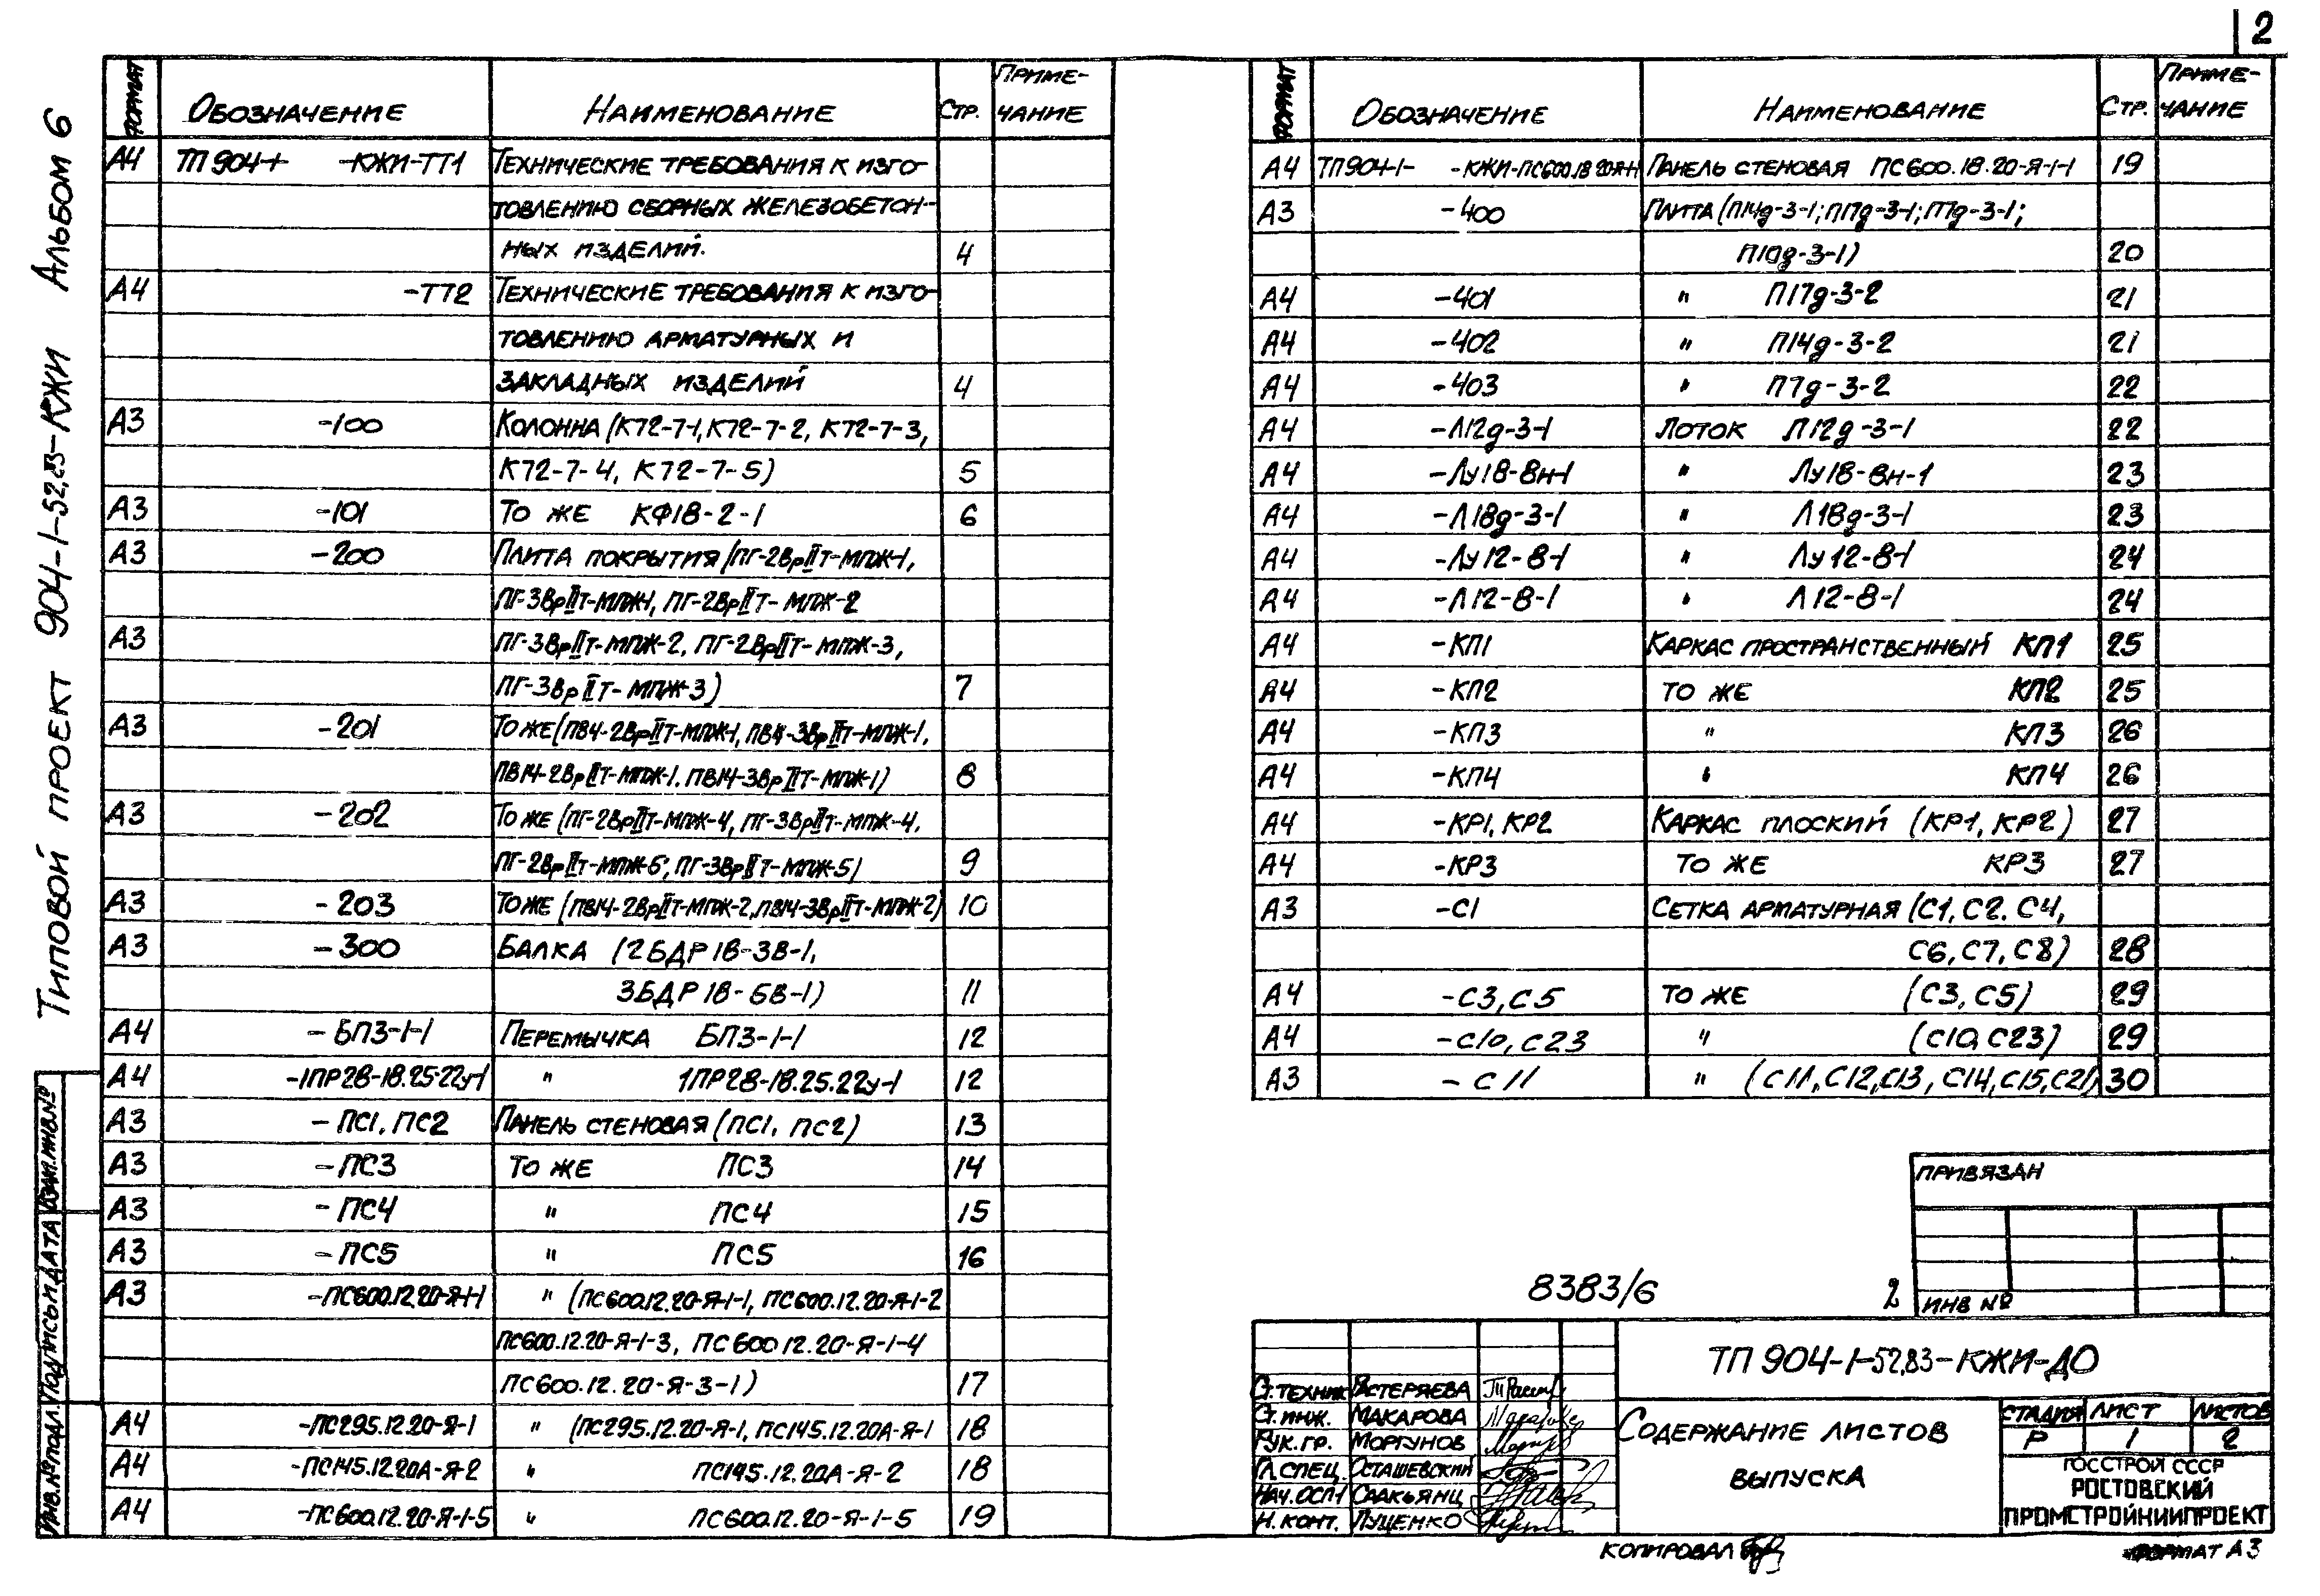 2
Типовой проект 904-1-52.83-КЖИ Альбом 6
Формат Обозначение Наименование Стр. Приме-
чание
А4 ТП 904-1- -КЖИ-ТТ1 Технические требования к изго-
товлению сборных железобетон-
ных изделий. 4
А4 -ТТ2 Технические требования к изго-
товлению арматурных и
закладных изделий 4
А3 -100 Колонна (К72-7-1, К72-7-2, К72-7-3,
К72-7-4, К72-7-5) 5
А3 -101 То же КФ18-2-1 6
А3 -200 Плита покрытия (ПГ-2ВрIIт-МПЖ-1,
ПГ-3ВрIIт-МПЖ-1, ПГ-2ВрIIт-МПЖ-2
А3 ПГ-3ВрIIт-МПЖ-2, ПГ-2ВрIIт-МПЖ-3,
ПГ-3ВрIIт-МПЖ-3) 7
А3 -201 То же (ПВ4-2ВрIIт-МПЖ-1, ПВ4-3ВрIIт-МПЖ-1,
ПВ14-2ВрIIт-МПЖ-1. ПВ14-3ВрIIт-МПЖ-1) 8
А3 -202 То же (ПГ-2ВрIIт-МПЖ-4, ПГ-3ВрIIт-МПЖ-4,
ПГ-2ВрIIт-МПЖ-5, ПГ-3ВрIIт-МПЖ-5) 9
А3 -203 То же (ПВ14-2ВрIIт-МПЖ-2, ПВ14-3ВрIIт-МПЖ-2) 10
А3 -300 Балка (2БДР18-3В-1,
3БДР18-5В-1) 11
А4 -БП3-1-1 Перемычка БП3-1-1 12
А4 -1ПР28-18.25.22у-1 " 1ПР28-18.25.22у-1 12
А3 -ПС1, ПС2 Панель стеновая (ПС1, ПС2) 13
А3 -ПС3 То же ПС3 14
А3 -ПС4 " ПС4 15
А3 -ПС5 " ПС5 16
А3 -ПС600.12.20-Я-1-1 " (ПС600.12.20-Я-1-1, ПС600.12.20-Я-1-2
ПС600.12.20-Я-1-3, ПС600.12.20-Я-1-4
ПС600.12.20-Я-3-1) 17
А4 -ПС295.12.20-Я-1 " (ПС295.12.20-Я-1, ПС145.12.20А-Я-1 18
А4 -ПС145.12.20А-Я-2 " ПС145.12.20А-Я-2 18
А4 -ПС600.12.20-Я-1-5 " ПС600.12.20-Я-1-5 19
Формат Обозначение Наименование Стр. Приме-
чание
А4 ТП904-1- -КЖИ-ПС600.18.20-Я-1-1 Панель стеновая ПС600.18.20-Я-1-1 19
А3 -400 Плита (П14д-3-1; П17д-3-1; П7д-3-1;
П10д-3-1) 20
А4 -401 " П17д-3-2 21
А4 -402 " П14д-3-2 21
А4 -403 " П7д-3-2 22
А4 -Л12д-3-1 Лоток Л12д-3-1 22
А4 -Лу18-8н-1 " Лу18-8н-1 23
А4 -Л18д-3-1 " Л18д-3-1 23
А4 -Лу12-8-1 " Лу12-8-1 24
А4 -Л12-8-1 " Л12-8-1 24
А4 -КП1 Каркас пространственный КП1 25
А4 -КП2 То же КП2 25
А4 -КП3 " КП3 26
А4 -КП4 " КП4 26
А4 -КР1, КР2 Каркас плоский (КР1, КР2) 27
А4 -КР3 То же КР3 27
А3 -С1 Сетка арматурная (С1, С2, С4,
С6, С7, С8) 28
А4 -С3, С5 То же (С3, С5) 29
А4 -С10, С23 " (С10, С23) 29
А3 -С11 " (С11, С12, С13, С14, С15, С21) 30
Привязан
Инв №
8383/6 2
ТП 904-1-52.83-КЖИ-ДО
Ст.техник Растеряева
Ст. инж. Макарова
Рук. гр. Моргунов
Гл. спец. Осташевский
Нач. ОСП1 Саакьянц
Н. конт. Луценко
Содержание листов
выпуска
Стадия Лист Листов
Р 1 2
Госстрой СССР
Ростовский
Промстройниипроект
Копировал
Формат А3
Инв.№подл. Подпись и дата Взам.инв.№